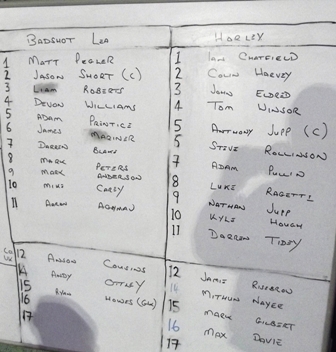 BADSHOT LEA
1 MATT PEGLER
2 JASON SHORT (C)
3 LIAM ROBERTS
4 DEVON WILLIAMS
5 ADAM PRINTICE
6 JAMES MARINER
7 DARREN BLAKE
8 MARK PETERS
9 MARK ANDERSON
10 MIKE CAREY
11 AARON
12 ANSON COUSINS
14 ANDY OTTLEY
15 RYAN HOWES (GK)
16
17
HORLEY
1 IAN CHATFIELD
2 COLIN HARVEY
3 JOHN ELDRED
4 TOM WINSOR
5 ANTHONY JUPP (C)
5 STEVE ROLLINSON
7 ADAM PULLIN
8 LUKE RAGETTI
9 NATHAN JUPP
10 KYLE HOUGH
11 DARREN TIDEY
12 JAMIE
14 MITHUN NAYEE
15 MARK GILBERT
16 MAX DAVIE
17